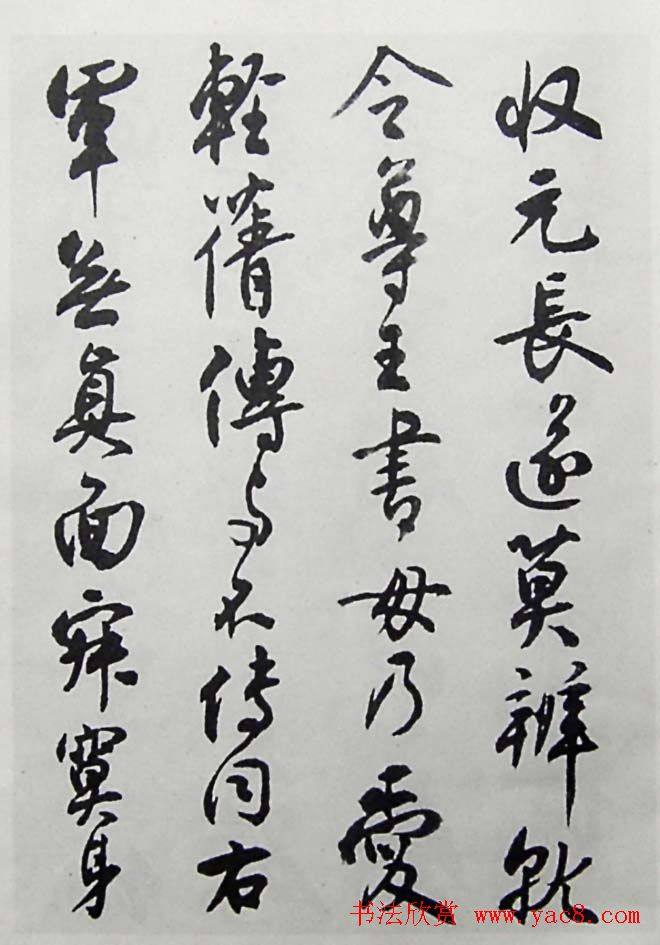 收元長遂莫辨孰
令尊王書毋乃愛
輕蒨傳与不傳同右
軍無真面寂寞身
书法欣赏 www.yac8.com